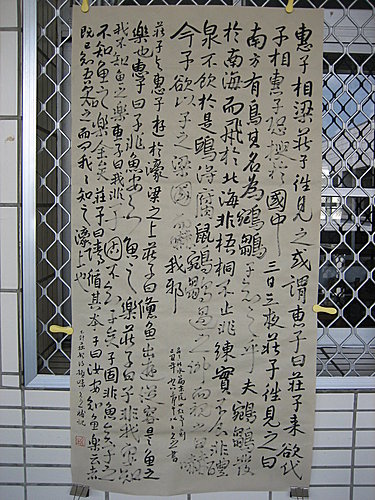 惠子相梁莊子往見之或謂惠子曰莊子來欲代
子相惠子恐搜於國中三日三夜莊子往見之曰
南方有鳥其名為鵷鶵子知之乎夫鵷鶵發
於南海而飛於北海非梧桐不止非練實不食非醴
泉不飲於是鴟得腐鼠鵷鶵過之仰而視之曰嚇
今子欲以子之梁國而嚇我邪
莊子與惠子遊於濠梁之上莊子曰儵魚出遊從容是魚之
樂也惠子曰子非魚安知魚之樂莊子曰子非我安知
我不知魚之樂惠子曰我非子固不知子矣子固非魚也子之
不知魚之樂全矣莊子曰請循其本子曰汝安知魚樂云者
既已知吾知之而問我我知之濠上也